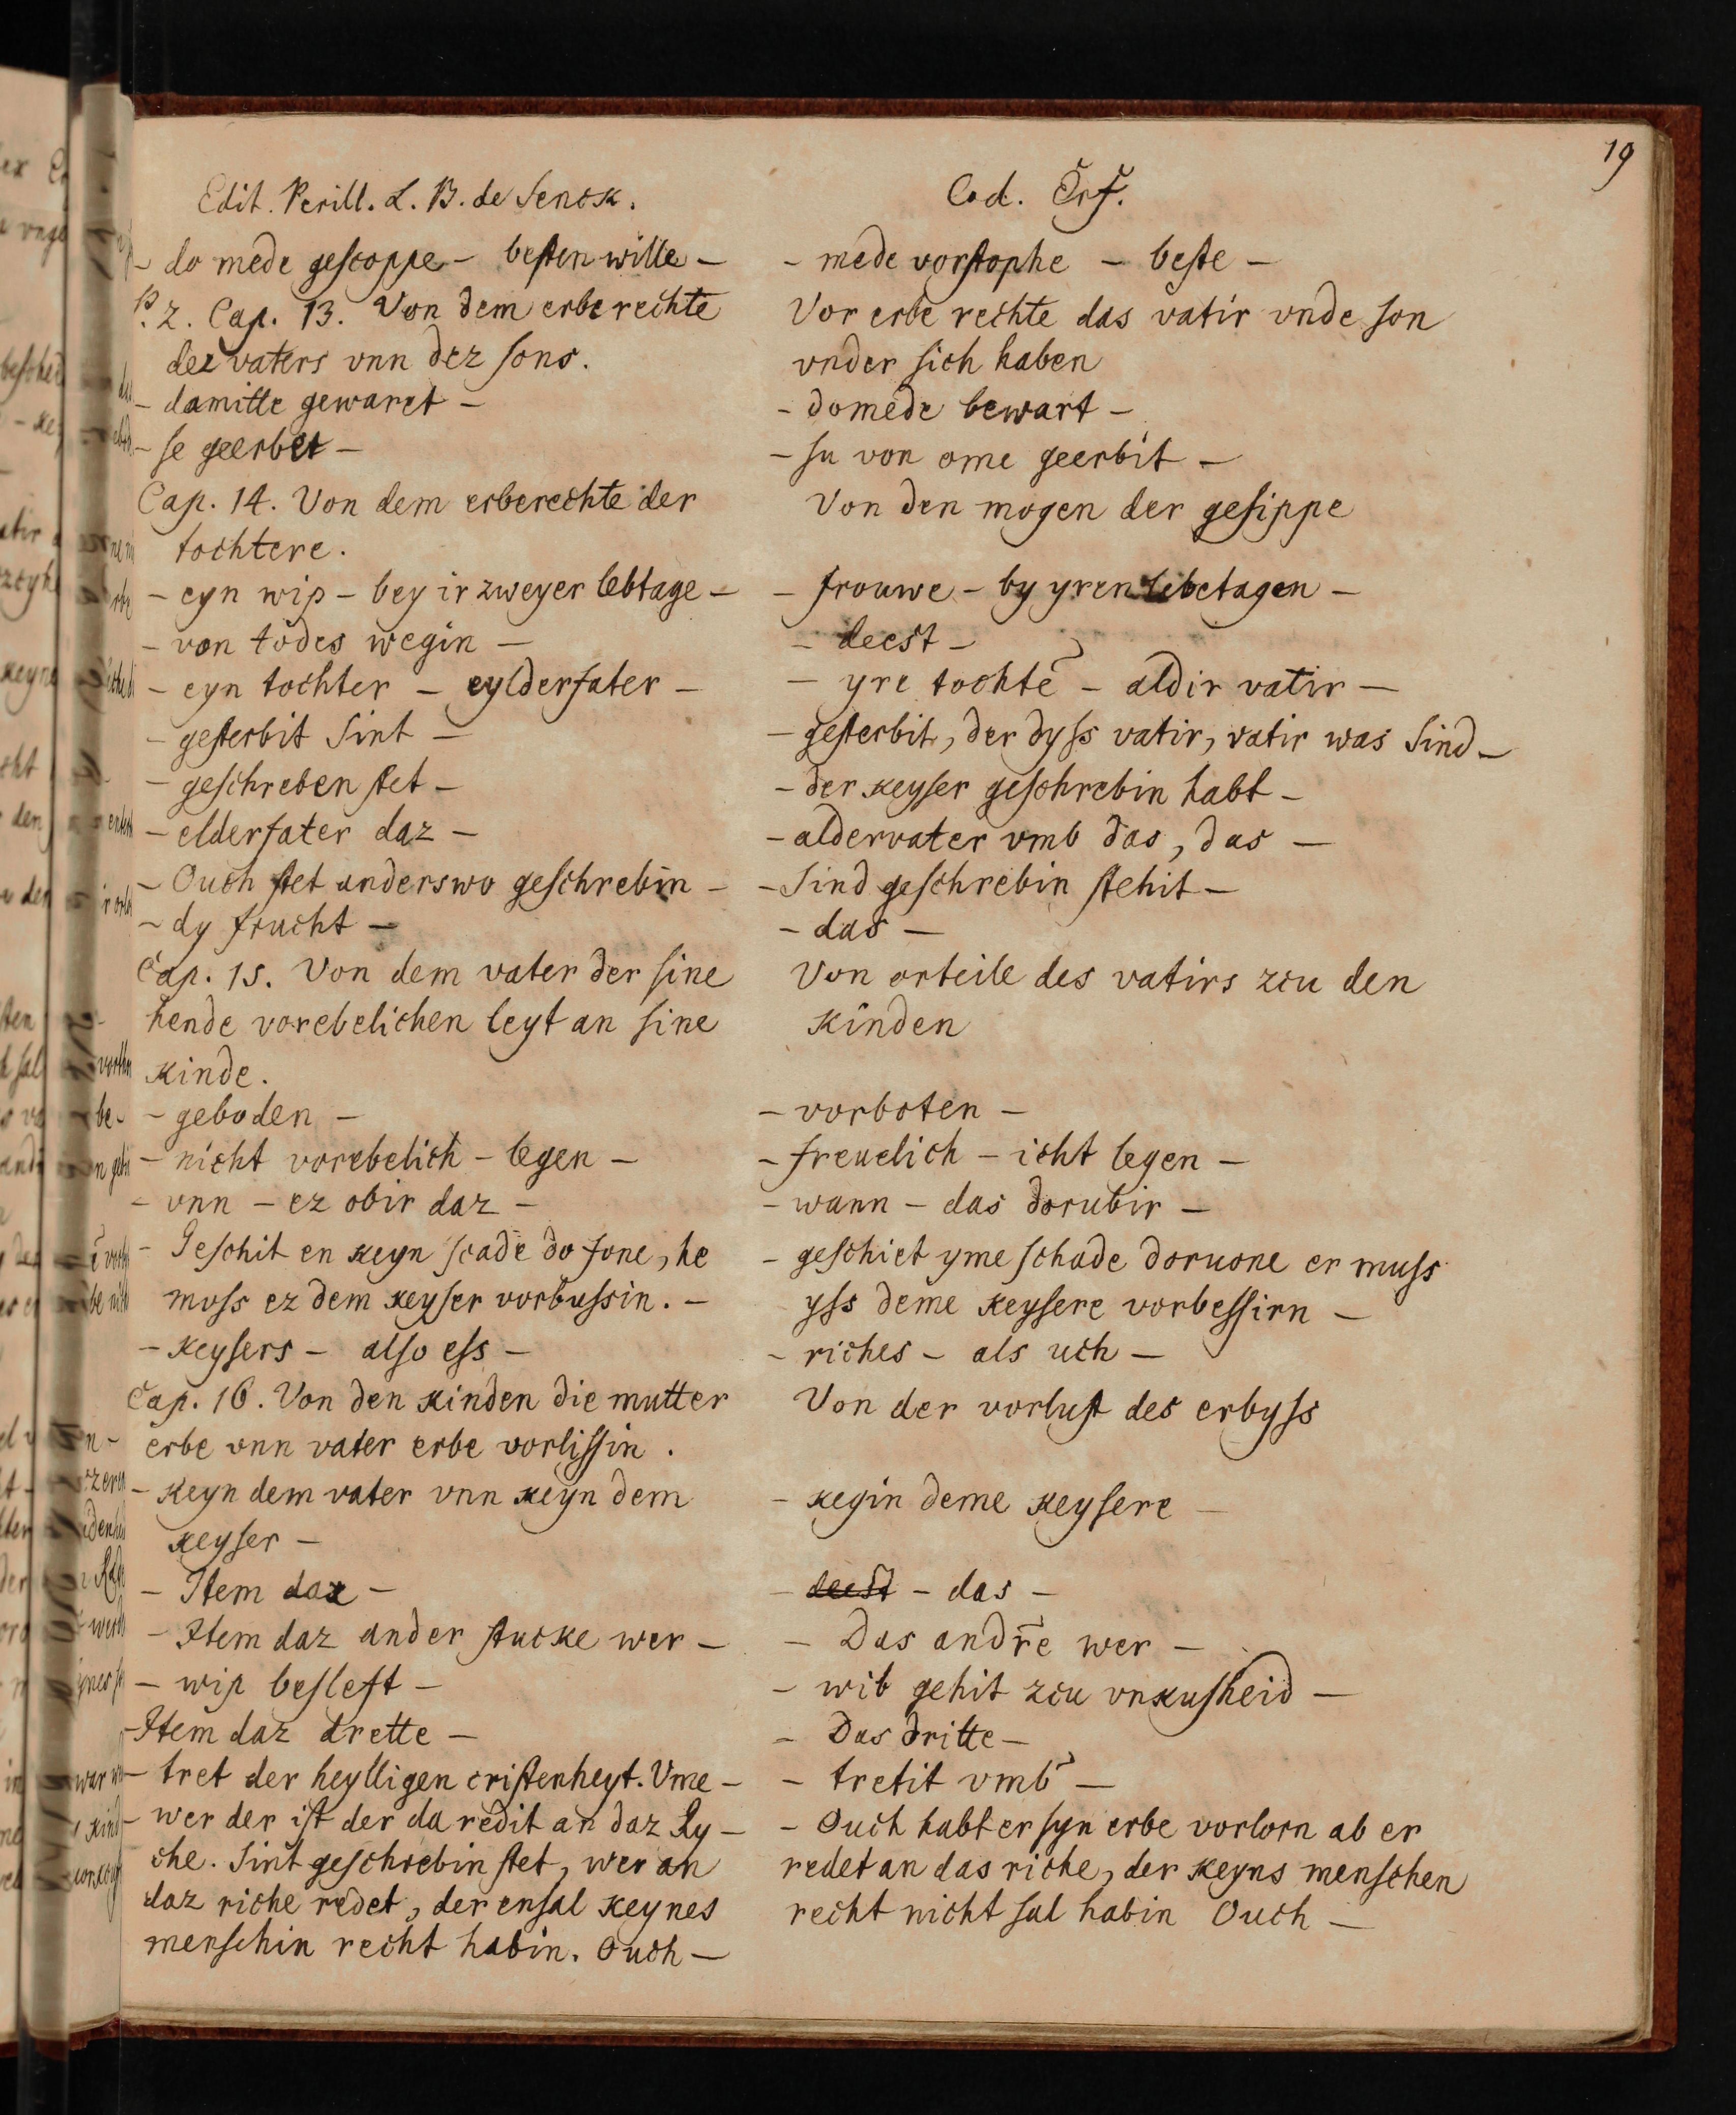 19
Edit. Perill. L. B. de Senck.
– do mede gescoppe – besten wille –
P. 2. Cap. 13. Von dem erbe rechte
dez vaters vnn dez sons.
– damitte gewaret –
– se geerbet –
Cap. 14. Von dem erberechte der
tochtere.
– eyn wip – bey ir zweyer lebtage –
– von todes wegin –
– eyn tochter – eylderfater –
– gesterbit sint –
– geschreben stet –
– elderfater daz –
– Ouch stet anderswo geschrebin –
– dy frucht –
Cap. 15. Von dem vater der sine
hende vorebelichen leyt an sine
kinde.
– geboden –
– nicht vorebelich – legen –
– vnn – ez obir daz –
– Geschit en keyn scade do fone, he
moss ez dem keyser vorbussin. –
– keysers – also ess –
Cap. 16. Von den kinden die mutter
erbe vnn vater erbe vorlissin.
– keyn dem vater vnn keyn dem
keyser –
– Item daz –
– Item daz ander stucke wer –
– wip besleft –
– Item daz drette –
– tret der heylligen cristenheyt. Vme –
– wer der ist der da redit an daz Ry–
che. Sint geschrebin stet, wer an
daz riche redet, der ensal keynes
menschin recht habin. Ouch –
Cod. Erf.
– mede vorstophe – beste –
Vor erbe rechte das vatir vnde son
vnder sich haben
– domede bewart –
– su von ome geerbit –
Von den mogen der gesippe
– frouwe – by yren lebetagen –
– deest –
– yre tochte – aldir vatir –
– gesterbit, der dyss vatir, vatir was sind –
– der keyser geschrebin habt –
– aldervater vmb das, das –
– Sind geschrebin stehit –
– das –
Von orteile des vatirs zcu den
kinden
– vorboten –
– freuelich – icht legen –
– wann – das dorubir –
– geschiet yme schade doruone er muss
yss deme keysere vorbessirn –
– riches – als uch –
Von der vorlust des erbyss
– kegin deme keysere –
– deest – das –
– Das andre wer –
– wib gehit zcu vnkusheid –
– Das dritte –
– tretit vmb –
– Ouch habt er syn erbe vorlorn ab er
redet an das riche, der keyns menschen
recht nicht sal habin Ouch –